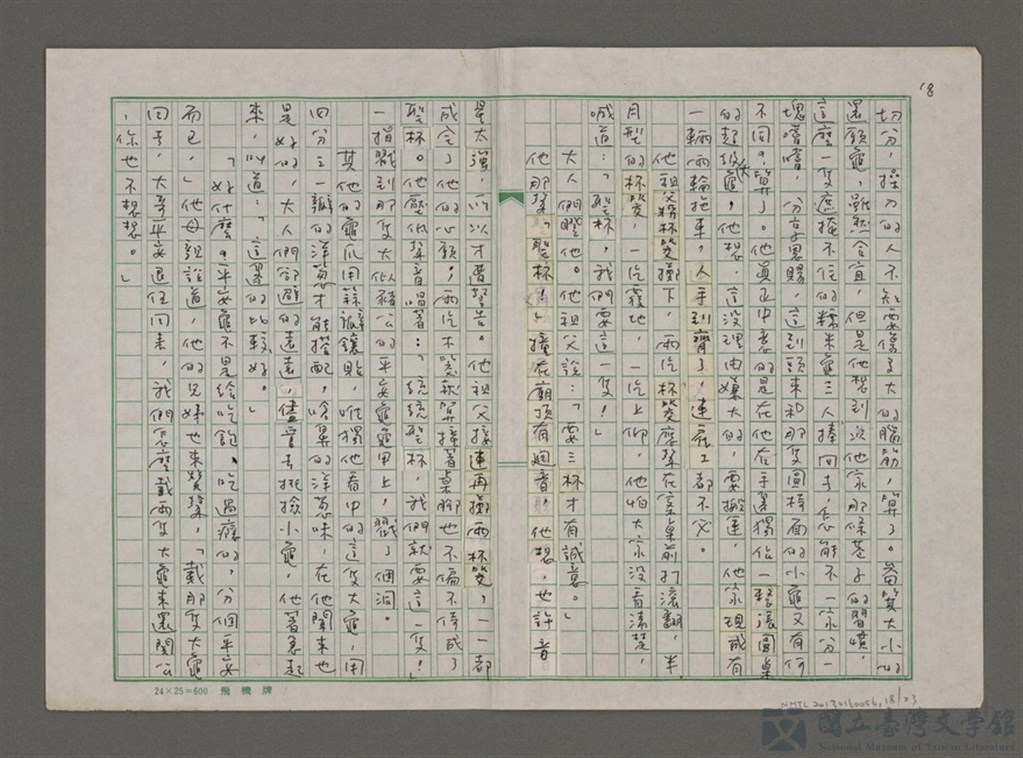 18
切分，操刀的人不知要傷了大的腦筋，算了。當算大小的
還願龜，雖然合宜，但是他想到次他家那條巷子的習慣，
這麼一隻遮掩不住的糯米龜三人捧回去，怎能不一家分一
塊嚐嚐，分享恩賜，這到頭來和那隻圓椅面的小龜又有何
不同。算了。他真正中意的是在他在手邊獨佔一整張圓桌
的超級大龜，他想，這沒理由嫌大的，要搬運，他家現成有
一輛兩輪拖車，人手到齊了，連雇工都不必。
他祖父將杯筊擲下，兩片杯筊摩挲在案桌前打滾翻，半
月型的杯筊，一片覆地，一片上仰，他怕大家沒看清楚，
喊道：「聖杯，我們要這一隻！」
大人們瞪他。他祖父說：「要三杯才有誠意。」
他那聲「聖杯！」撞在廟頂有迴音，他想，也許音
量太強，所以才遭警告。他祖父接連再擲兩杯筊，一一都
成全了他的心願，兩片木筊就算撞著桌腳也不偏不倚成了
聖杯。他壓低聲音唱著：「統統聖杯，我們就要這一隻！」
一指戳到那隻大似豬公的平安龜龜甲上，戳了個洞。
其他的龜爪用蒜瓣鑲貼，唯獨他看中的這隻大龜，用
四分之一瓣的洋蔥才能搭配，嗆鼻的洋蔥味，在他聞來也
是好的，大人們卻避的遠遠，儘管去挑撿小龜，他著急起
來，叫道：「這邊的比較好。」
「好什麼。平安龜不是給吃飽、吃過癮的，分個平安
而已，」他母親說道，他的兄姊也來贊聲，「載那隻大龜
回去，大哥平安退伍回來，我們怎麼載兩隻大龜來還關公
，你也不想想。」
24×25=600 飛機牌
NMTL20130160056, 18/23
國立臺灣文學館
National Museum of Taiwan Literature